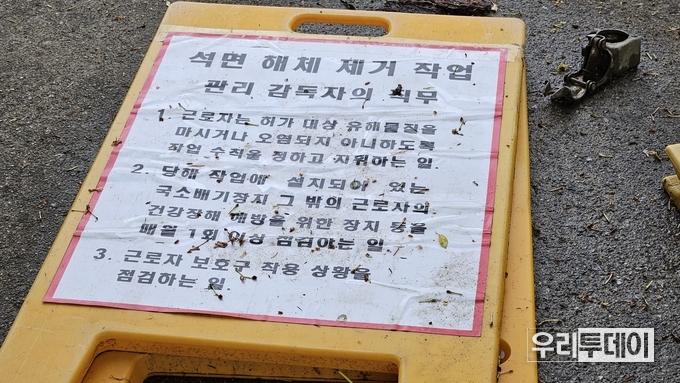 석면 해체 제거 작업
관리 감독자의 직무
1. 근로자는 허가 대상 유해물질을
마시거나 오염되지 아니하도록
작업 수칙을 정하고 지휘하는 일.
2. 당해 작업에 설치되어 있는
국소배기장치 그 밖의 근로자의
건강장해 예방을 위한 장치 등을
매월 1회 이상 점검하는 일.
3. 근로자 보호구 착용 상황을
점검하는 일.
우리투데이